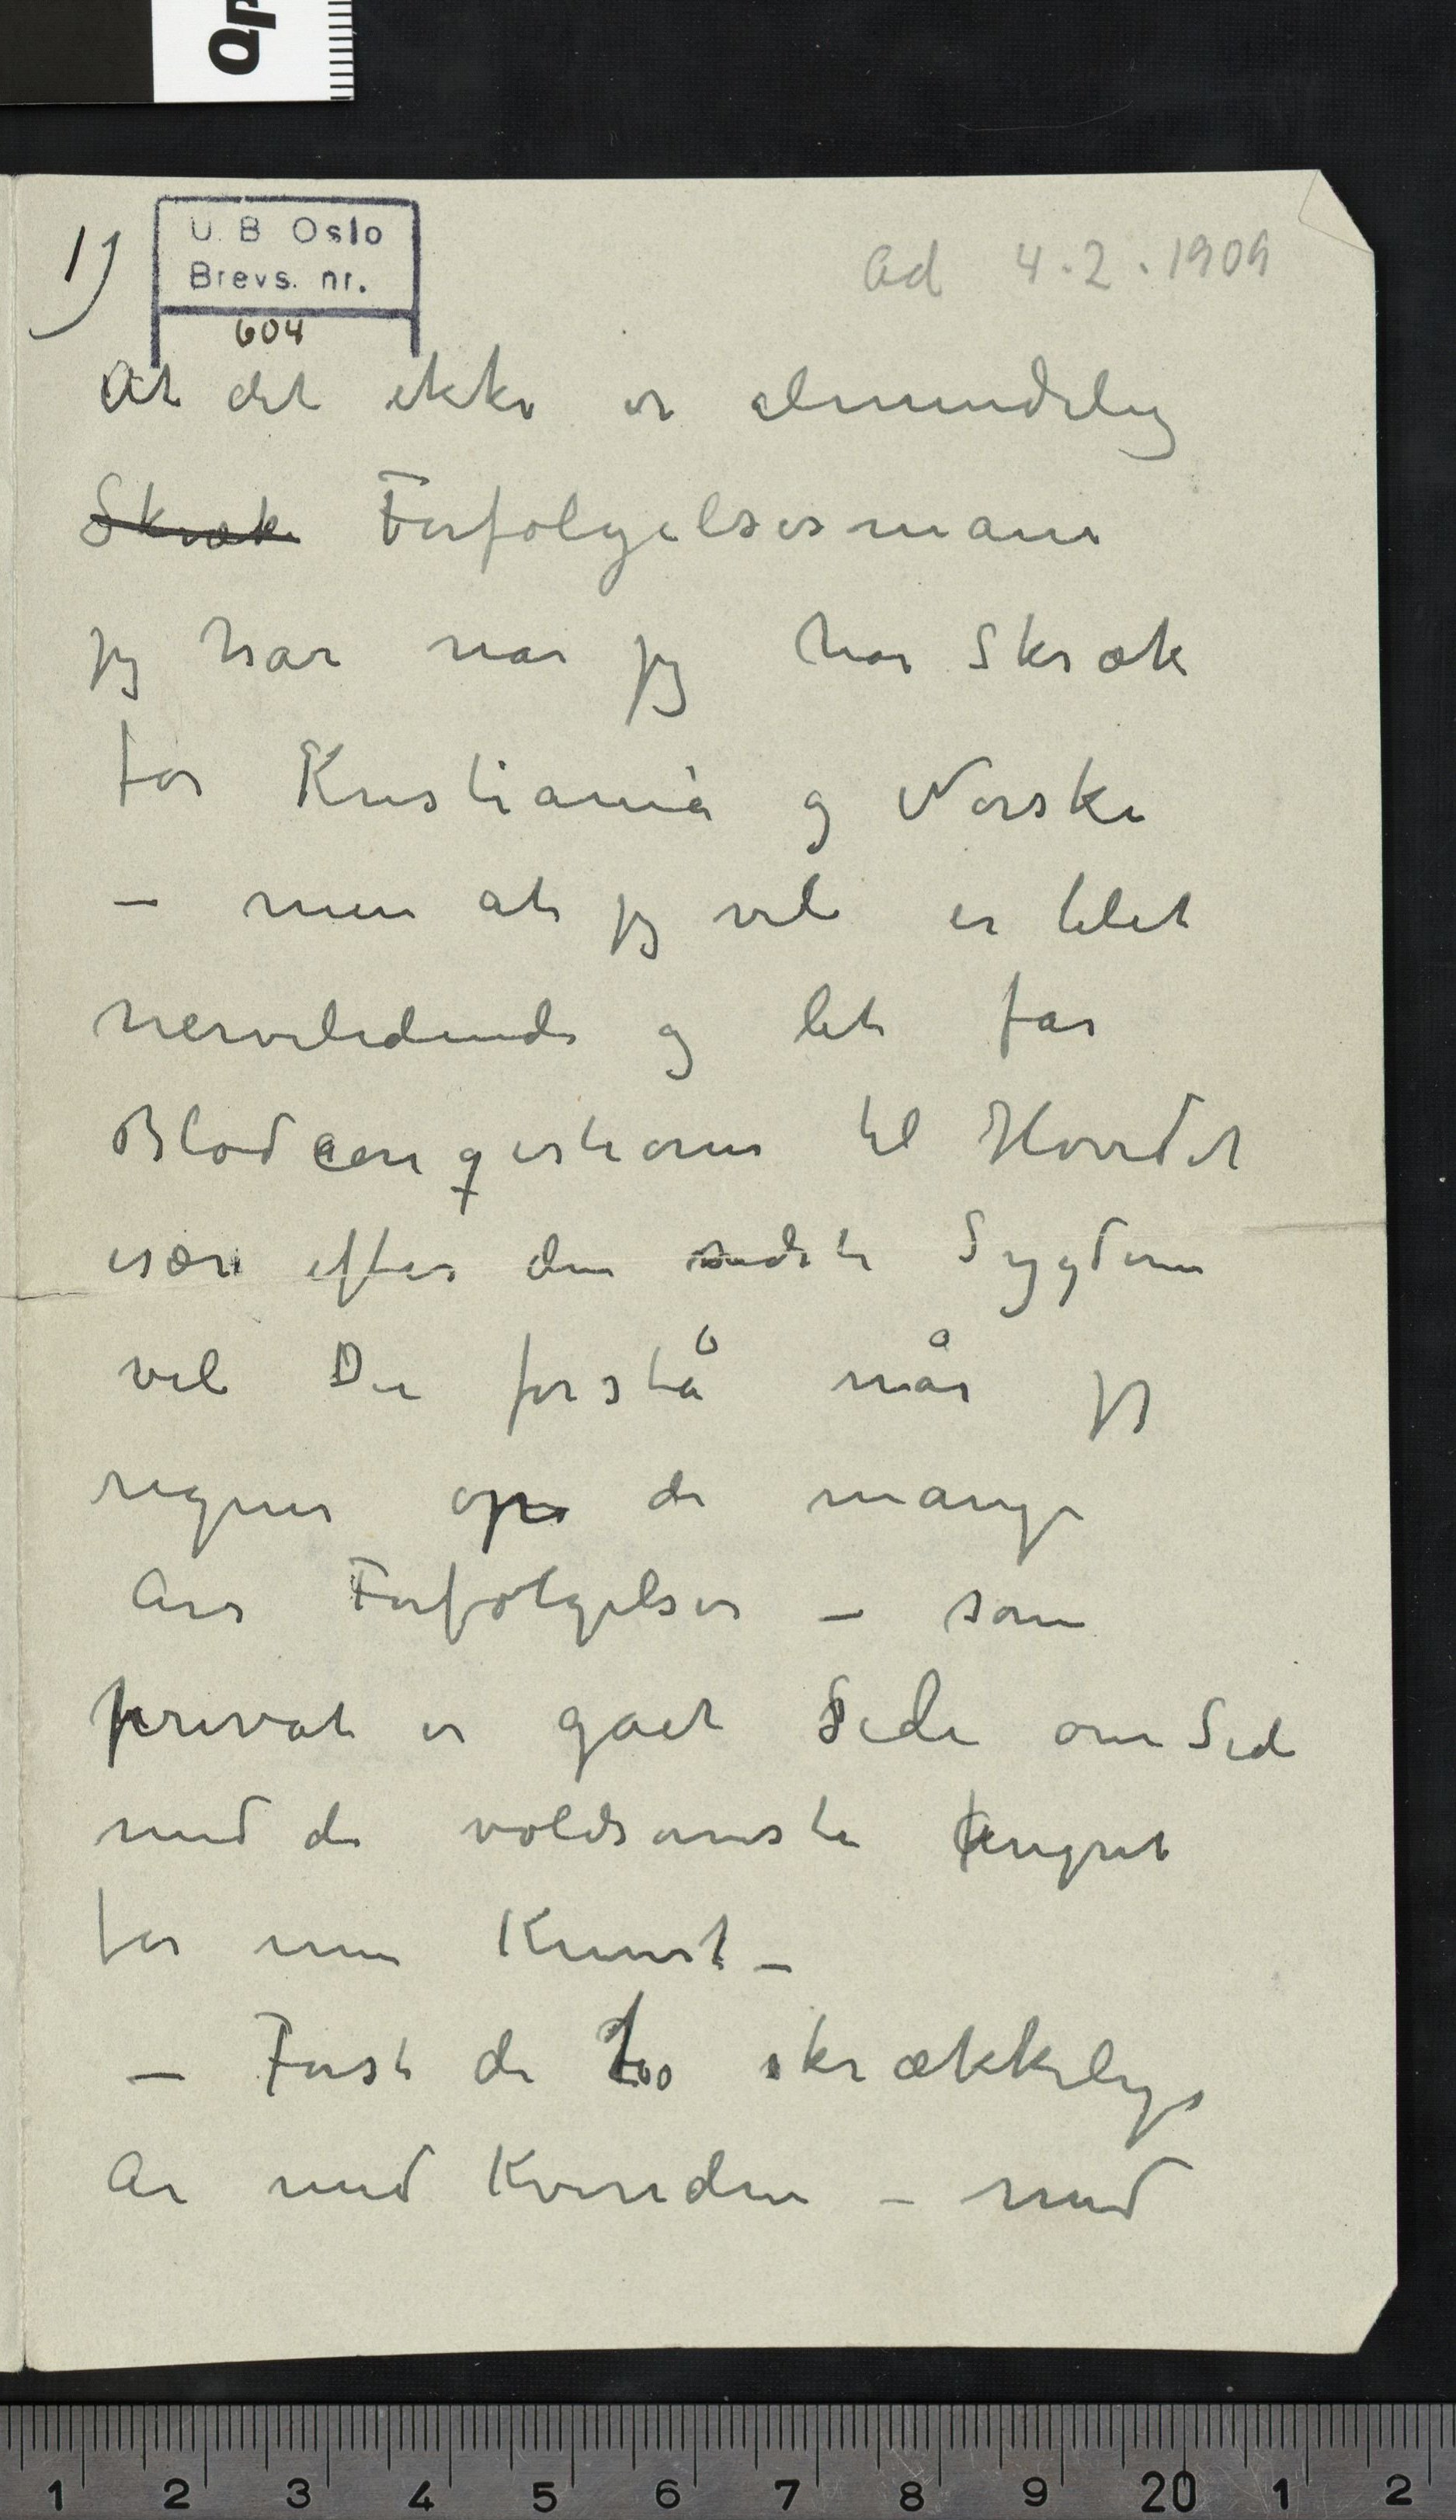 1)
U. B Oslo
Brevs. nr.
604
Ad 4.2.1909
At det ikke er almindelig
Skræk Forfølgelsesmani
jeg har nar jeg har Skræk
for Kristiania og Norske
– men at jeg vel er blet
nervelidende og let får
Blodcongestioner til Hovedet
især efter den sidste Sygdom
vil De forstå når jeg
regner op de mange
Ars Forfølgelser – som
privat er gået Side om Side
med de voldsomste Angreb
for min Kunst –
– Først de to skrækkelige
Ar med Kvinden – med
1 2 3 4 5 6 7 8 9 20 1 2